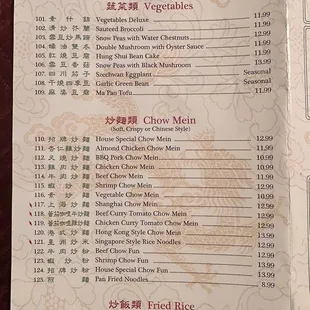 蔬菜類 Vegetables
101. 素什錦 Vegetables Deluxe 11.99
102. 清炒芥蘭 Sauteed Broccoli 11.99
103. 雪豆炒馬蹄 Snow Peas with Water Chestnuts
104. 蠔油雙冬 Double Mushroom with Oyster Sauce
105. 紅燒豆腐 Hung Shui Bean Cake
106. 雪豆香菇 Snow Peas with Black Mushroom
107. 四川茄子 Szechwan Eggplant Seasonal
108. 干燒四季豆 Garlic Green Bean Seasonal
109. 麻婆豆腐 Ma Pan Tofu 11.99
炒麵類 Chow Mein
(Soft, Crispy or Chinese Style)
110. 招牌炒麵 House Special Chow Mein 12.99
111. 杏仁雞炒麵 Almond Chicken Chow Mein 11.99
112. 叉燒炒麵 BBQ Pork Chow Mein 10.99
113. 雞肉炒麵 Chicken Chow Mein
114. 牛肉炒麵 Beef Chow Mein
115. 蝦炒麵 Shrimp Chow Mein
116. 素炒麵 Vegetable Chow Mein
117. 上海炒麵 Shanghai Chow Mein
118. Beef Curry Tomato Chow Mein
119. Chicken Curry Tomato Chow Mein
120. 港式炒麵 Hong Kong Style Chow Mein
121. 星洲炒米 Singapore Style Rice Noodles
122. 牛肉炒粉 Beef Chow Fun
123. 蝦炒粉 Shrimp Chow Fun
124. 招牌炒粉 House Special Chow Fun 13.99
125. 煎麵 Pan Fried Noodles 8.99
炒飯類 Fried Rice